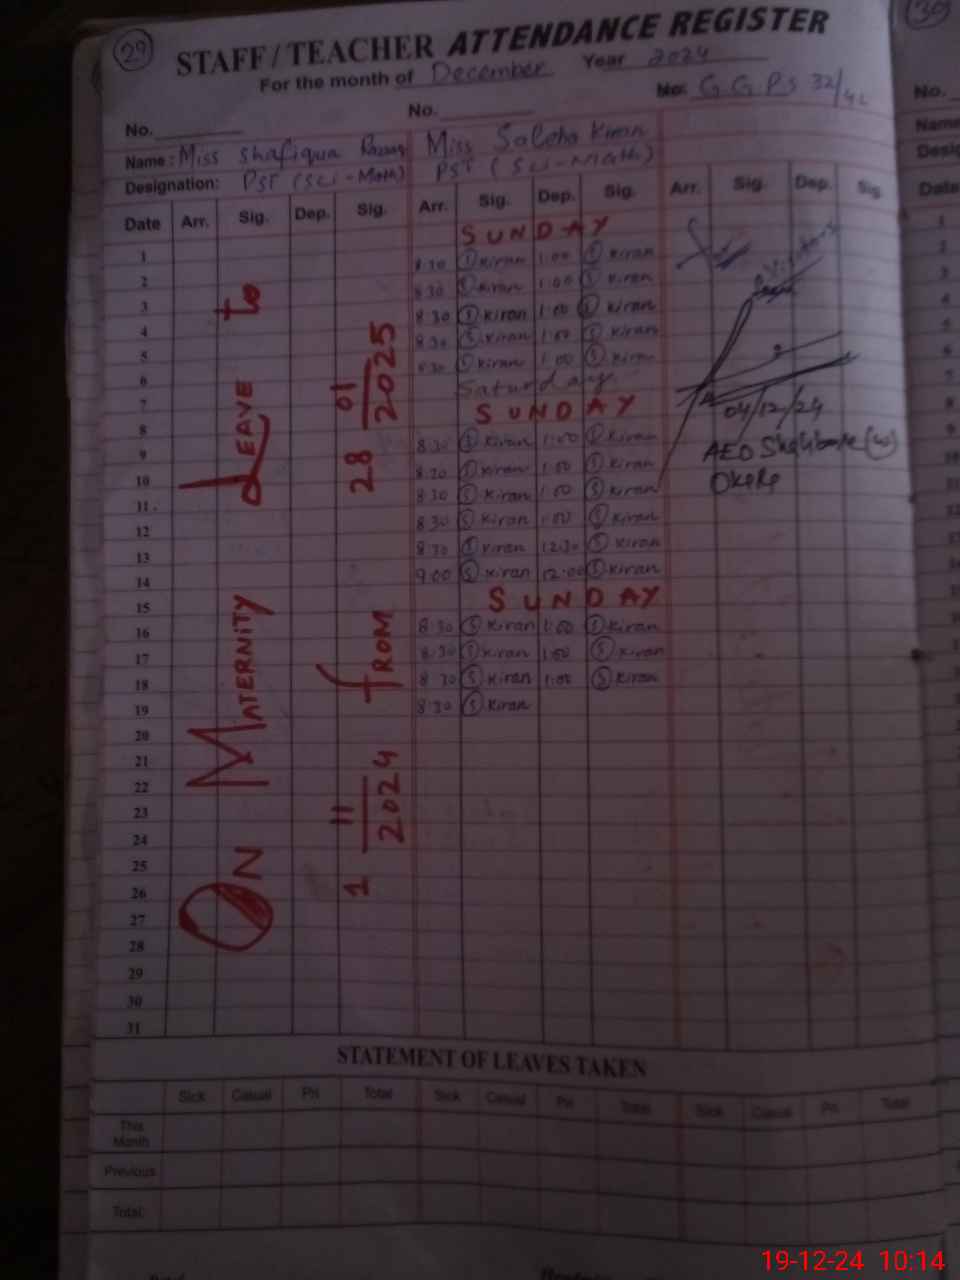 29
STAFF / TEACHER ATTENDANCE REGISTER
For the month of December Year 2024
No. No. No: G.G.P.S 32/4L
Name: Miss Shafiqua Miss Saleha Kiran
Designation: PST (Sci-Math) PST (Sci-Math)
Date Arr. Sig. Dep. Sig. Arr. Sig. Dep. Sig. Arr. Sig. Dep. Sig.
1 SUNDAY
2 8:30 S Kiran 1:00 S Kiran
3 8:30 S Kiran 1:00 S Kiran
4 8:30 S Kiran 1:00 S Kiran
5 8:30 S Kiran 1:00 S Kiran
6 8:30 S Kiran 1:00 S Kiran
7 Saturday
8 SUNDAY
9 8:30 S Kiran 1:00 S Kiran
10 8:30 S Kiran 1:00 S Kiran
11 8:30 S Kiran 1:00 S Kiran
12 8:30 S Kiran 1:00 S Kiran
13 8:30 S Kiran 12:30 S Kiran
14 9:00 S Kiran 12:00 S Kiran
15 SUNDAY
16 8:30 S Kiran 1:00 S Kiran
17 8:30 S Kiran 1:00 S Kiran
18 8:30 S Kiran 1:00 S Kiran
19 8:30 S Kiran
20
21
22
23
24
25
26
27
28
29
30
31
ON MATERNITY LEAVE to
1 11 2024 FROM 28 01 2025
04/12/24
AEO
STATEMENT OF LEAVES TAKEN
Sick Casual Pri Total Sick Casual Pri Total Sick Casual Pri Total
This Month
Previous
Total:
30
No.
19-12-24 10:14